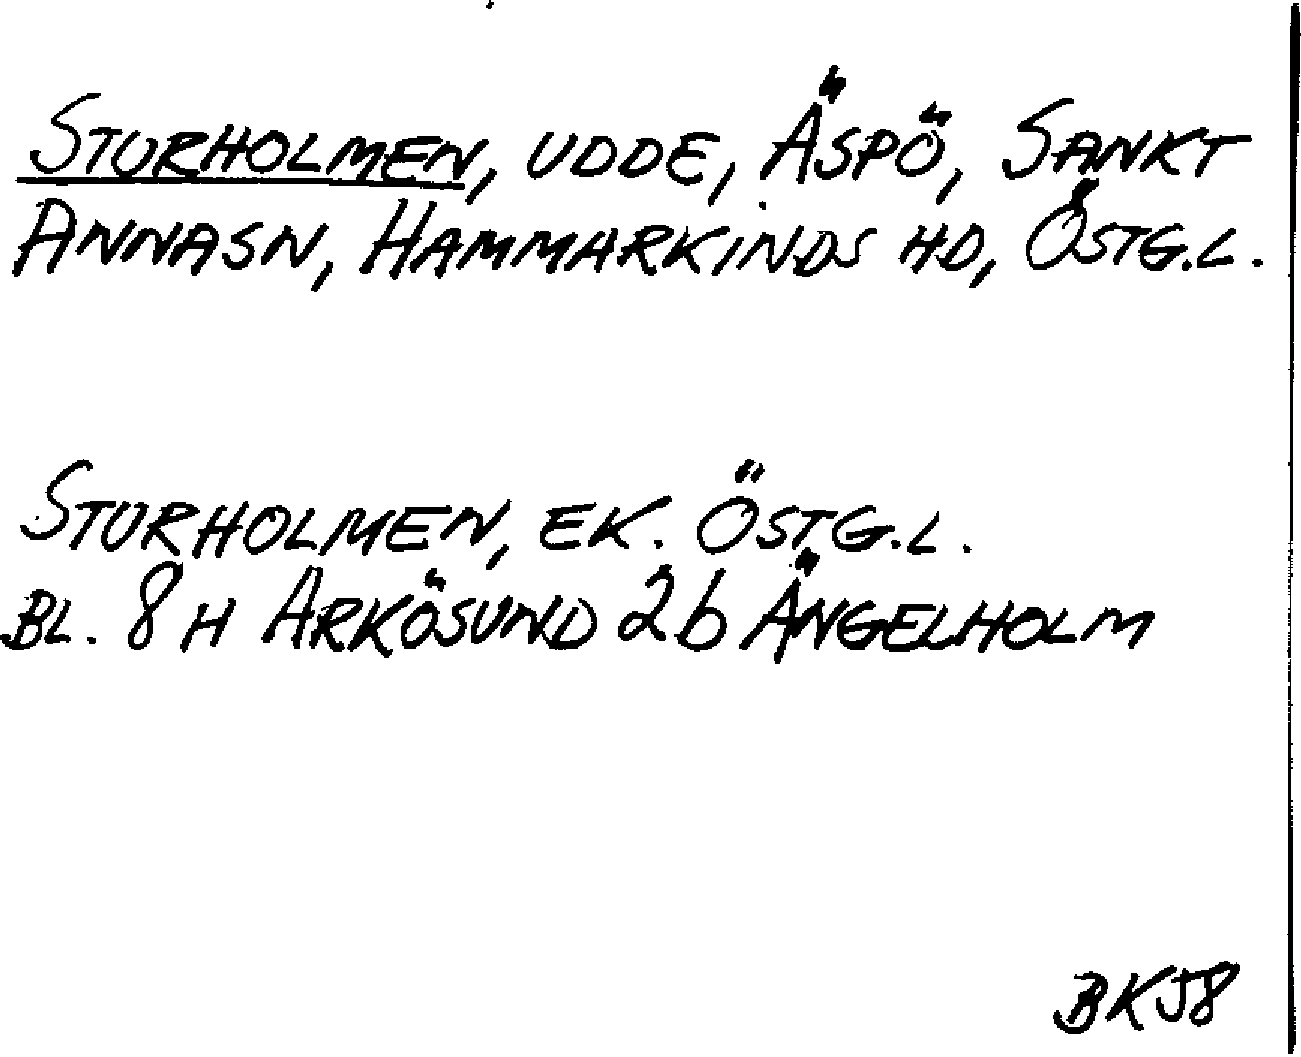 STURHOLMEN, UDDE, ÄSPÖ, SANKT
ANNASN, HAMMARKINDS HD, ÖSTG.L.
STURHOLMEN, EK. ÖSTG.L.
BL. 8 H ARKÖSUND 2b ÄNGELHOLM
BK58